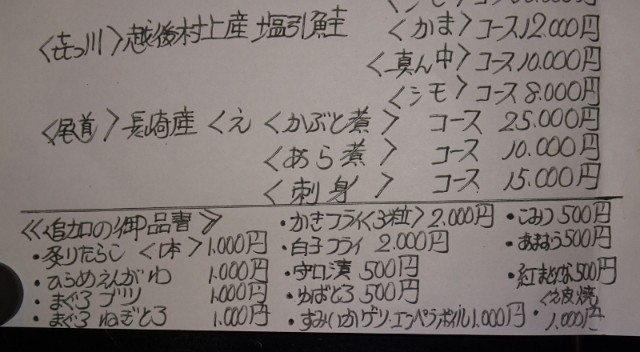 <シモ>コース
<㐂っ川>越後村上産 塩引鮭 <かま>コース12.000円
<真ん中>コース10.000円
<シモ>コース8.000円
<尾道>長崎産 くえ <かぶと煮> コース 25.000円
<あら煮> コース 10.000円
<刺身> コース 15.000円
≪追加の御品書≫
・炙りたらこ <1本> 1.000円
・ひらめえんがわ 1.000円
・まぐろブツ 1.000円
・まぐろねぎとろ 1.000円
・かきフライ<3粒> 2.000円
・白子フライ 2.000円
・守口漬 500円
・ゆばとろ 500円
・すみいかゲソ・エンペラボイル1.000円
・こみつ500円
・あまおう500円
・紅まどんな500円
・くえ皮焼 1.000円